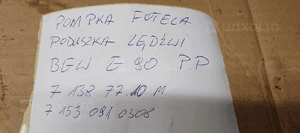 POMPKA FOTELA
PODUSZKA LĘDŹWI
BEW E 90 P.P
7 138 77.10 M
7 153 091 0508